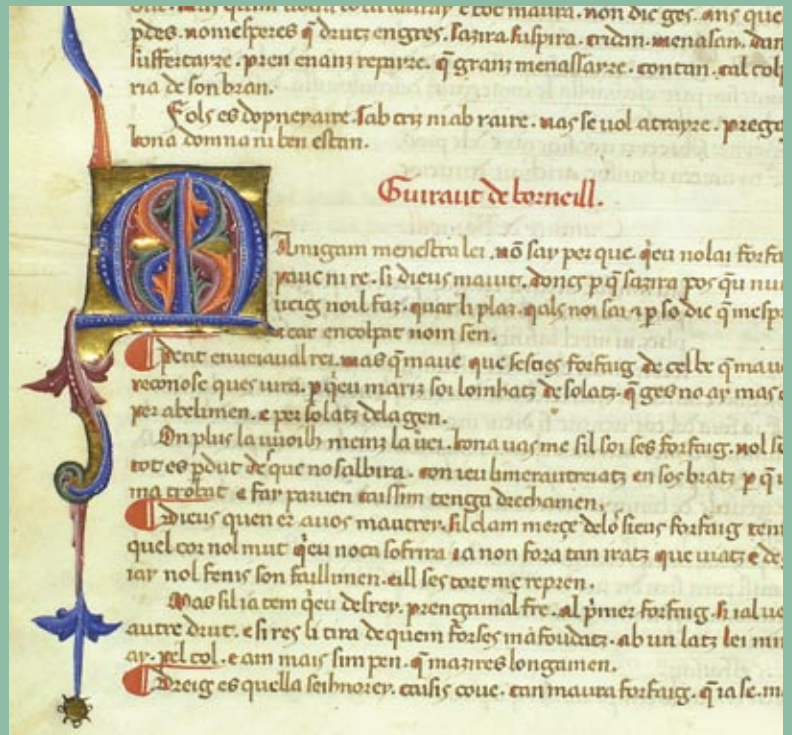 pdes. nomesperes q̄ drutz engres. sazira suspira. cridin. menasan. dan
suffertayre. pren enanz repayre. q̄ granz menassayre. contan. tal colp
ria de son bran.
Fols es dopneyaire. sab criz ni ab raire. uas se uol atrayre. prega
bona domna ni ben estan.
Guiraut de borneill.
M Amigam menestra lei. nō say per que. q̄eu nolai forfa
pauc ni re. si dieus maiut. doncs p q̄ sazira pos qu nu
ueig noil faz. quar li plaz. qals noi sai p so dic q̄ mesp
car encolpat nom sen.
Petit enueiaual rei. mas q̄ maue que sescies forfaig de cel be q̄ maue
reconose ques uira. p q̄eu mariz soi loinhatz de solatz. q̄ ges no ay mas
per abelimen. e per solatz dela gen.
On plus la uuoilh meinz la uei. bona uas me sil soi ses forfaig. nol
tot es pdut de que nosalbira. con ieu limerautreiatz en sos bratz p q̄
ma trobat e far paruen caissim tenga drechamen.
Dieus quen er auos mautrer. sil clam merçe delo sieus forfaig tem
quel cor nol mut q̄eu noca sofrira ia non fora tan iratz que uiatz e de
iar nol fenis son faillimen. eill ses tort me repren.
Mas sil ia tem q̄eu desrey. prengamal fre. al pmer forfaig. si ial
autre drut. e si res li tira de quem forses mafoudatz. ab un latz lei
ay. pel col. e am mais sim pen. q̄ mazires longamen.
Dreig es quella seihnorey. caisis coue. can maura forfaig. q̄ ia se.